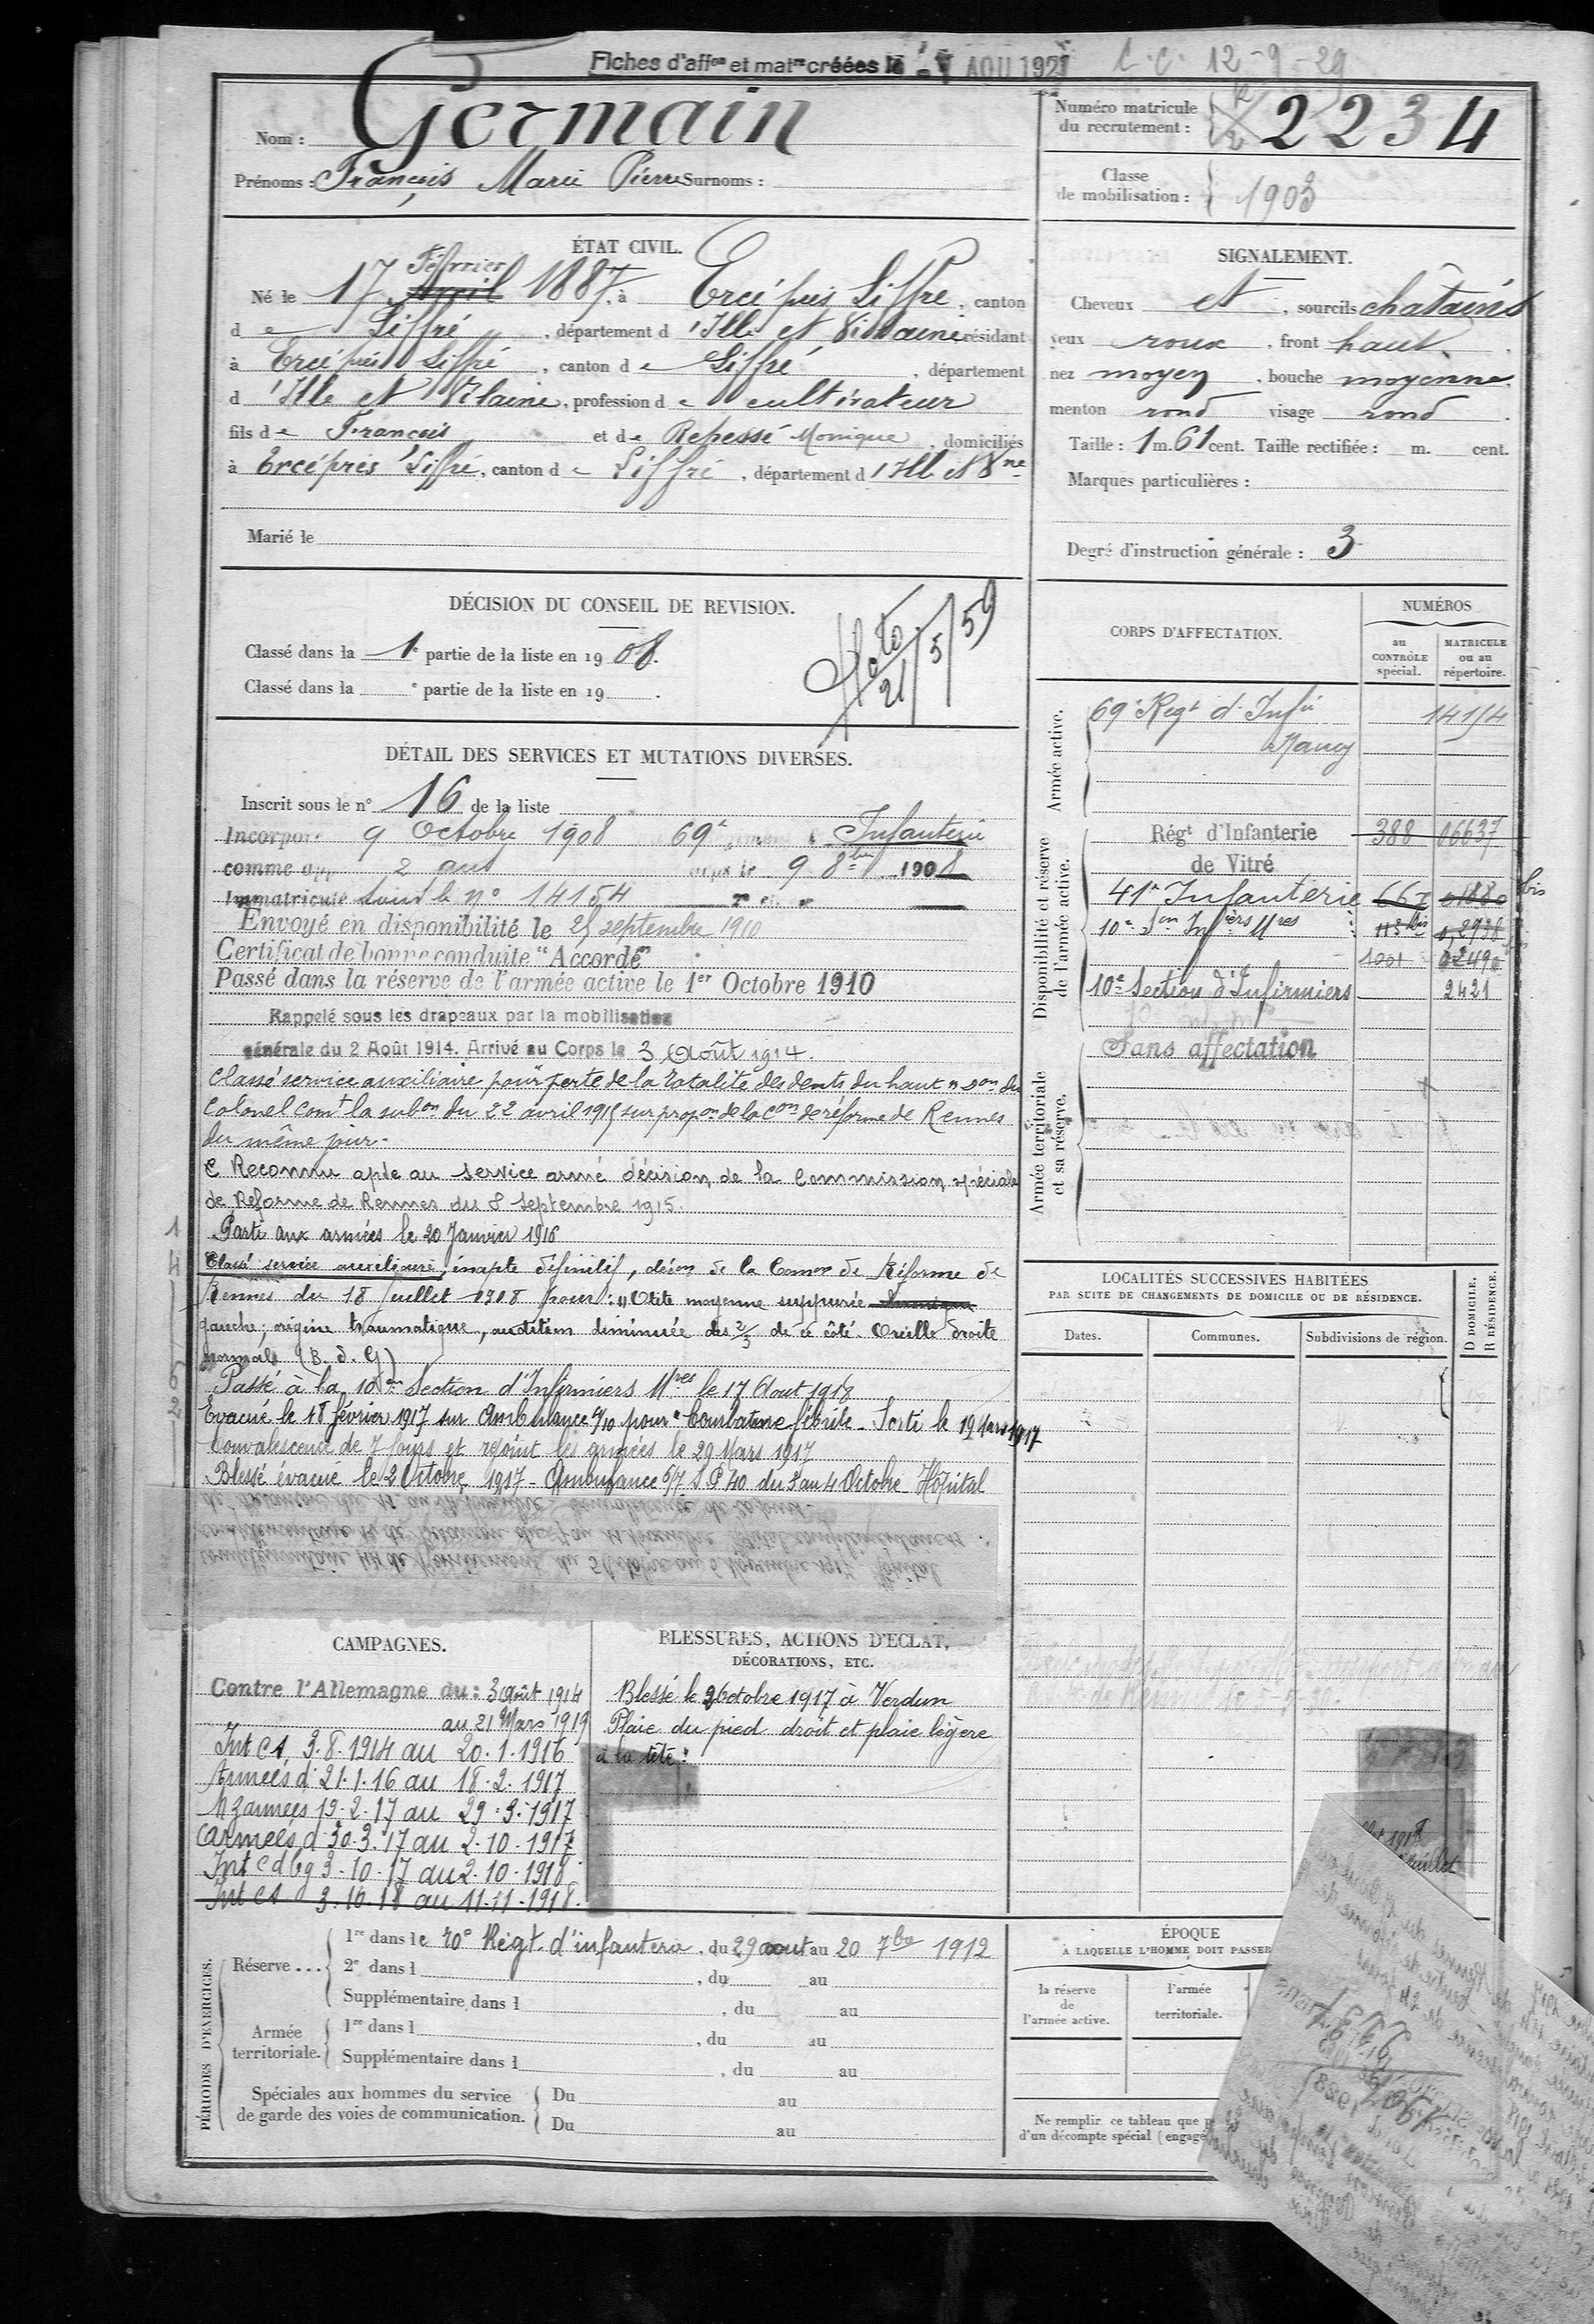 Fiches d'aff<sup>on</sup> et mat<sup>re</sup> créées le AOU 192
C.C. 12-9-29
Nom : Germain
Prénoms : François Marie Pierre Surnoms :
Numéro matricule du recrutement : 2234
Classe de mobilisation : 1903
ÉTAT CIVIL.
Né le 17 Février Avril 1887, à Ercé près Liffré, canton
de Liffré, département d'Ille et Vilaine résidant
à Ercé près Liffré, canton de Liffré, département
d'Ille et Vilaine, profession de cultivateur
fils de François et de Repessé Monique, domiciliés
à Ercé près Liffré, canton de Liffré, département d'Ille et Vne
Marié le
SIGNALEMENT.
Cheveux et, sourcils châtains
yeux roux, front haut
nez moyen, bouche moyenne
menton rond visage rond
Taille : 1 m. 61 cent. Taille rectifiée : m. cent.
Marques particulières :
Degré d'instruction générale : 3
DÉCISION DU CONSEIL DE REVISION.
Classé dans la 1e partie de la liste en 1908.
Classé dans la e partie de la liste en 19 .
21/5/59
DÉTAIL DES SERVICES ET MUTATIONS DIVERSES.
Inscrit sous le n° 16 de la liste
Incorporé 9 Octobre 1908 69e Infanterie
comme app 2 ans corps le 9 8bre 1908
Immatriculé sous le n° 14154
Envoyé en disponibilité le 25 septembre 1910
Certificat de bonne conduite "Accordé"
Passé dans la réserve de l'armée active le 1er Octobre 1910
Rappelé sous les drapeaux par la mobilisation
générale du 2 Août 1914. Arrivé au Corps le 3 Août 1914.
Classé service auxiliaire pour perte de la totalité des dents du haut don du
Colonel Comt la subon du 22 avril 1915 sur propon de la Con de réforme de Rennes
du même jour.
Reconnu apte au service armé décision de la Commission spéciale
de Reforme de Rennes du 8 Septembre 1915.
Parti aux armées le 20 Janvier 1916
Classé service auxiliaire, inapte définitif, décon de la Comon de Réforme de
Rennes du 18 Juillet 1918 pour : "Otite moyenne suppurée
gauche; origine traumatique, audition diminuée des 2/3 de ce côté. Oreille droite
normale (B. d. G)
Passé à la 10e Section d'Infirmiers Mres le 17 Aout 1918
Evacué le 18 février 1917 sur Ambulance 4/10 pour "Courbature fébrile. Sorti le 19 Mars 1917
Convalescence de 7 jours et rejoint les armées le 29 Mars 1917
Blessé évacué le 2 Octobre 1917 - Ambulance 6/7 S.P. 40 du 3 au 4 Octobre Hôpital
1
4
6
2
CORPS D'AFFECTATION.
NUMÉROS
au CONTRÔLE spécial.
MATRICULE ou au répertoire.
Armée active.
69e Regt d'Infie 14154
Nancy
Disponibilité et réserve de l'armée active.
Régt d'Infanterie 388 06637
de Vitré
41e Infanterie 667 01880 bis
10e Son Infiers Mres 113 bis
1001 02490
10e Section d'Infirmiers 2421
Armée territoriale et sa réserve.
Sans affectation
LOCALITÉS SUCCESSIVES HABITÉES
PAR SUITE DE CHANGEMENTS DE DOMICILE OU DE RÉSIDENCE.
Dates.
Communes.
Subdivisions de région.
D DOMICILE.
R RÉSIDENCE.
CAMPAGNES.
Contre l'Allemagne du : 3 Août 1914
au 21 Mars 1919
Int CS, 3.8.1914 au 20.1.1916
Armées d 21.1.16 au 18.2.1917
N Zarmées 19.2.17 au 29.3.1917
C armées d 30.3.17 au 2.10.1917
Int C d bg 3-10-17 au 2-10-1918
Int CS 3.10.18 au 11-11-1918.
BLESSURES, ACTIONS D'ECLAT,
DÉCORATIONS, ETC.
Blessé le 2 Octobre 1917 à Verdun
Plaie du pied droit et plaie légère
à la tête.
PÉRIODES D'EXERCICES.
Réserve ...
1re dans le 70e Régt. d'infanterie, du 29 aout au 20 7bre 1912
2e dans l , du au
Supplémentaire dans l , du au
Armée territoriale.
1re dans l , du au
Supplémentaire dans l , du au
Spéciales aux hommes du service
de garde des voies de communication.
Du au
Du au
ÉPOQUE
À LAQUELLE L'HOMME DOIT PASSER
la réserve de l'armée active.
l'armée territoriale.
Ne remplir ce tableau que p
d'un décompte spécial (engagé